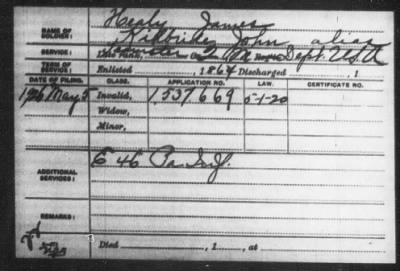 Healy James
NAME OF SOLDIER:
Kilbride, John alias
SERVICE: Late Rank, Q. M. Dept. U.S.A.
TERM OF SERVICE: Enlisted , 1864 Discharged , 1
DATE OF FILING. CLASS. APPLICATION NO. LAW. CERTIFICATE NO.
1926 May 5 Invalid, 1,537,669 5-1-20
Widow,
Minor,
E 46 Pa. Inf.
ADDITIONAL SERVICES:
REMARKS:
Died , 1 , at